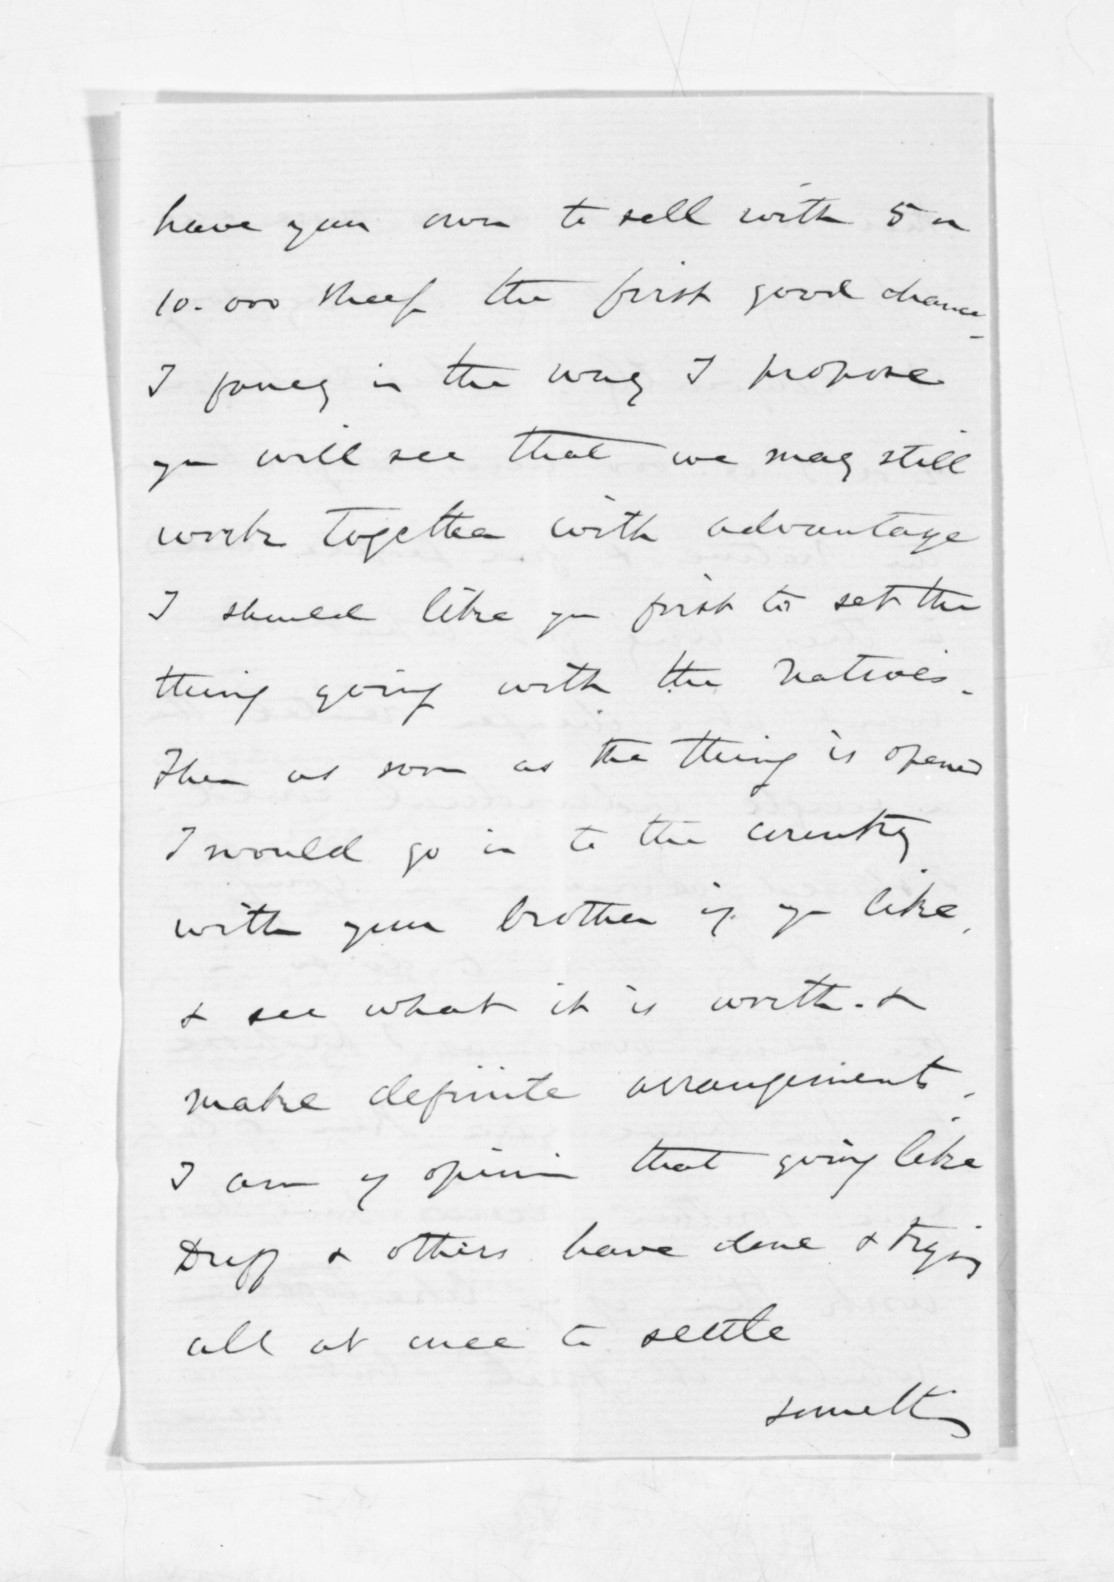 have your own to sell with 5 or
10.000 sheep the first good chance_
I fancy in the way I propose
you will see that we may still
work together with advantage
I should like you first to set the
thing going with the Natives_
Then as soon as the thing is opened
I would go in to the country
with your brother if you like,
& see what it is worth. &
make definite arrangements.
I am of opinion that going like
Duff & others have done & trying
all at once to settle
something